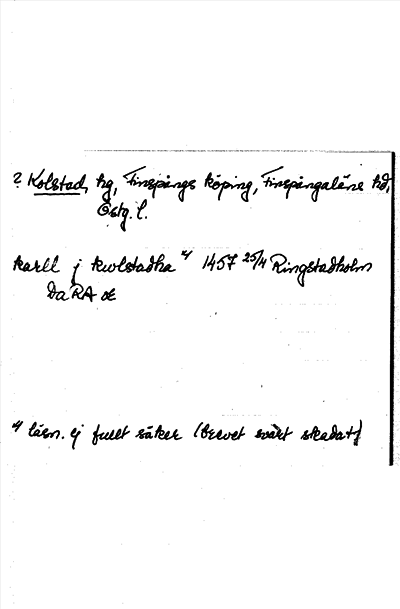 ? Kolstad, hg, Finspångs köping, Finspångaläns hd,
Östg. l.
karll j kwlstadha 1) 1457 25/4 Ringstadholm
DaRA or
1) läsn. ej fullt säker (brevet svårt skadat)